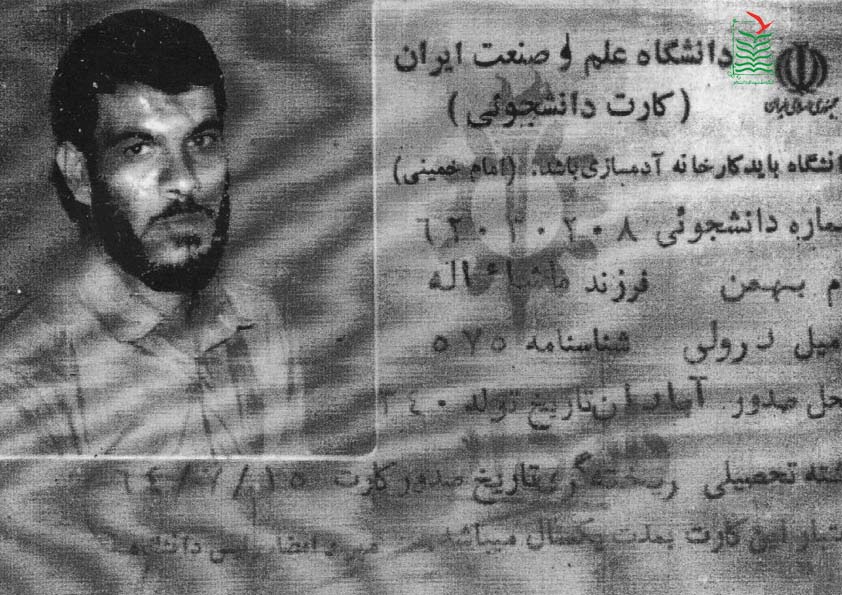 دانشگاه علم و صنعت ایران
(کارت دانشجوئی)
دانشگاه باید کارخانه آدمسازی باشد. (امام خمینی)
شماره دانشجوئی ۶۲۰۳۰۲۰۸
نام بهمن فرزند ماشاءاله
فامیل درولی شناسنامه ۵۷۵
محل صدور آبادان تاریخ تولد ۳۴۰
رشته تحصیلی ریخته‌گری تاریخ صدور کارت ۶۴/۷/۱۵
اعتبار این کارت بمدت یکسال میباشد